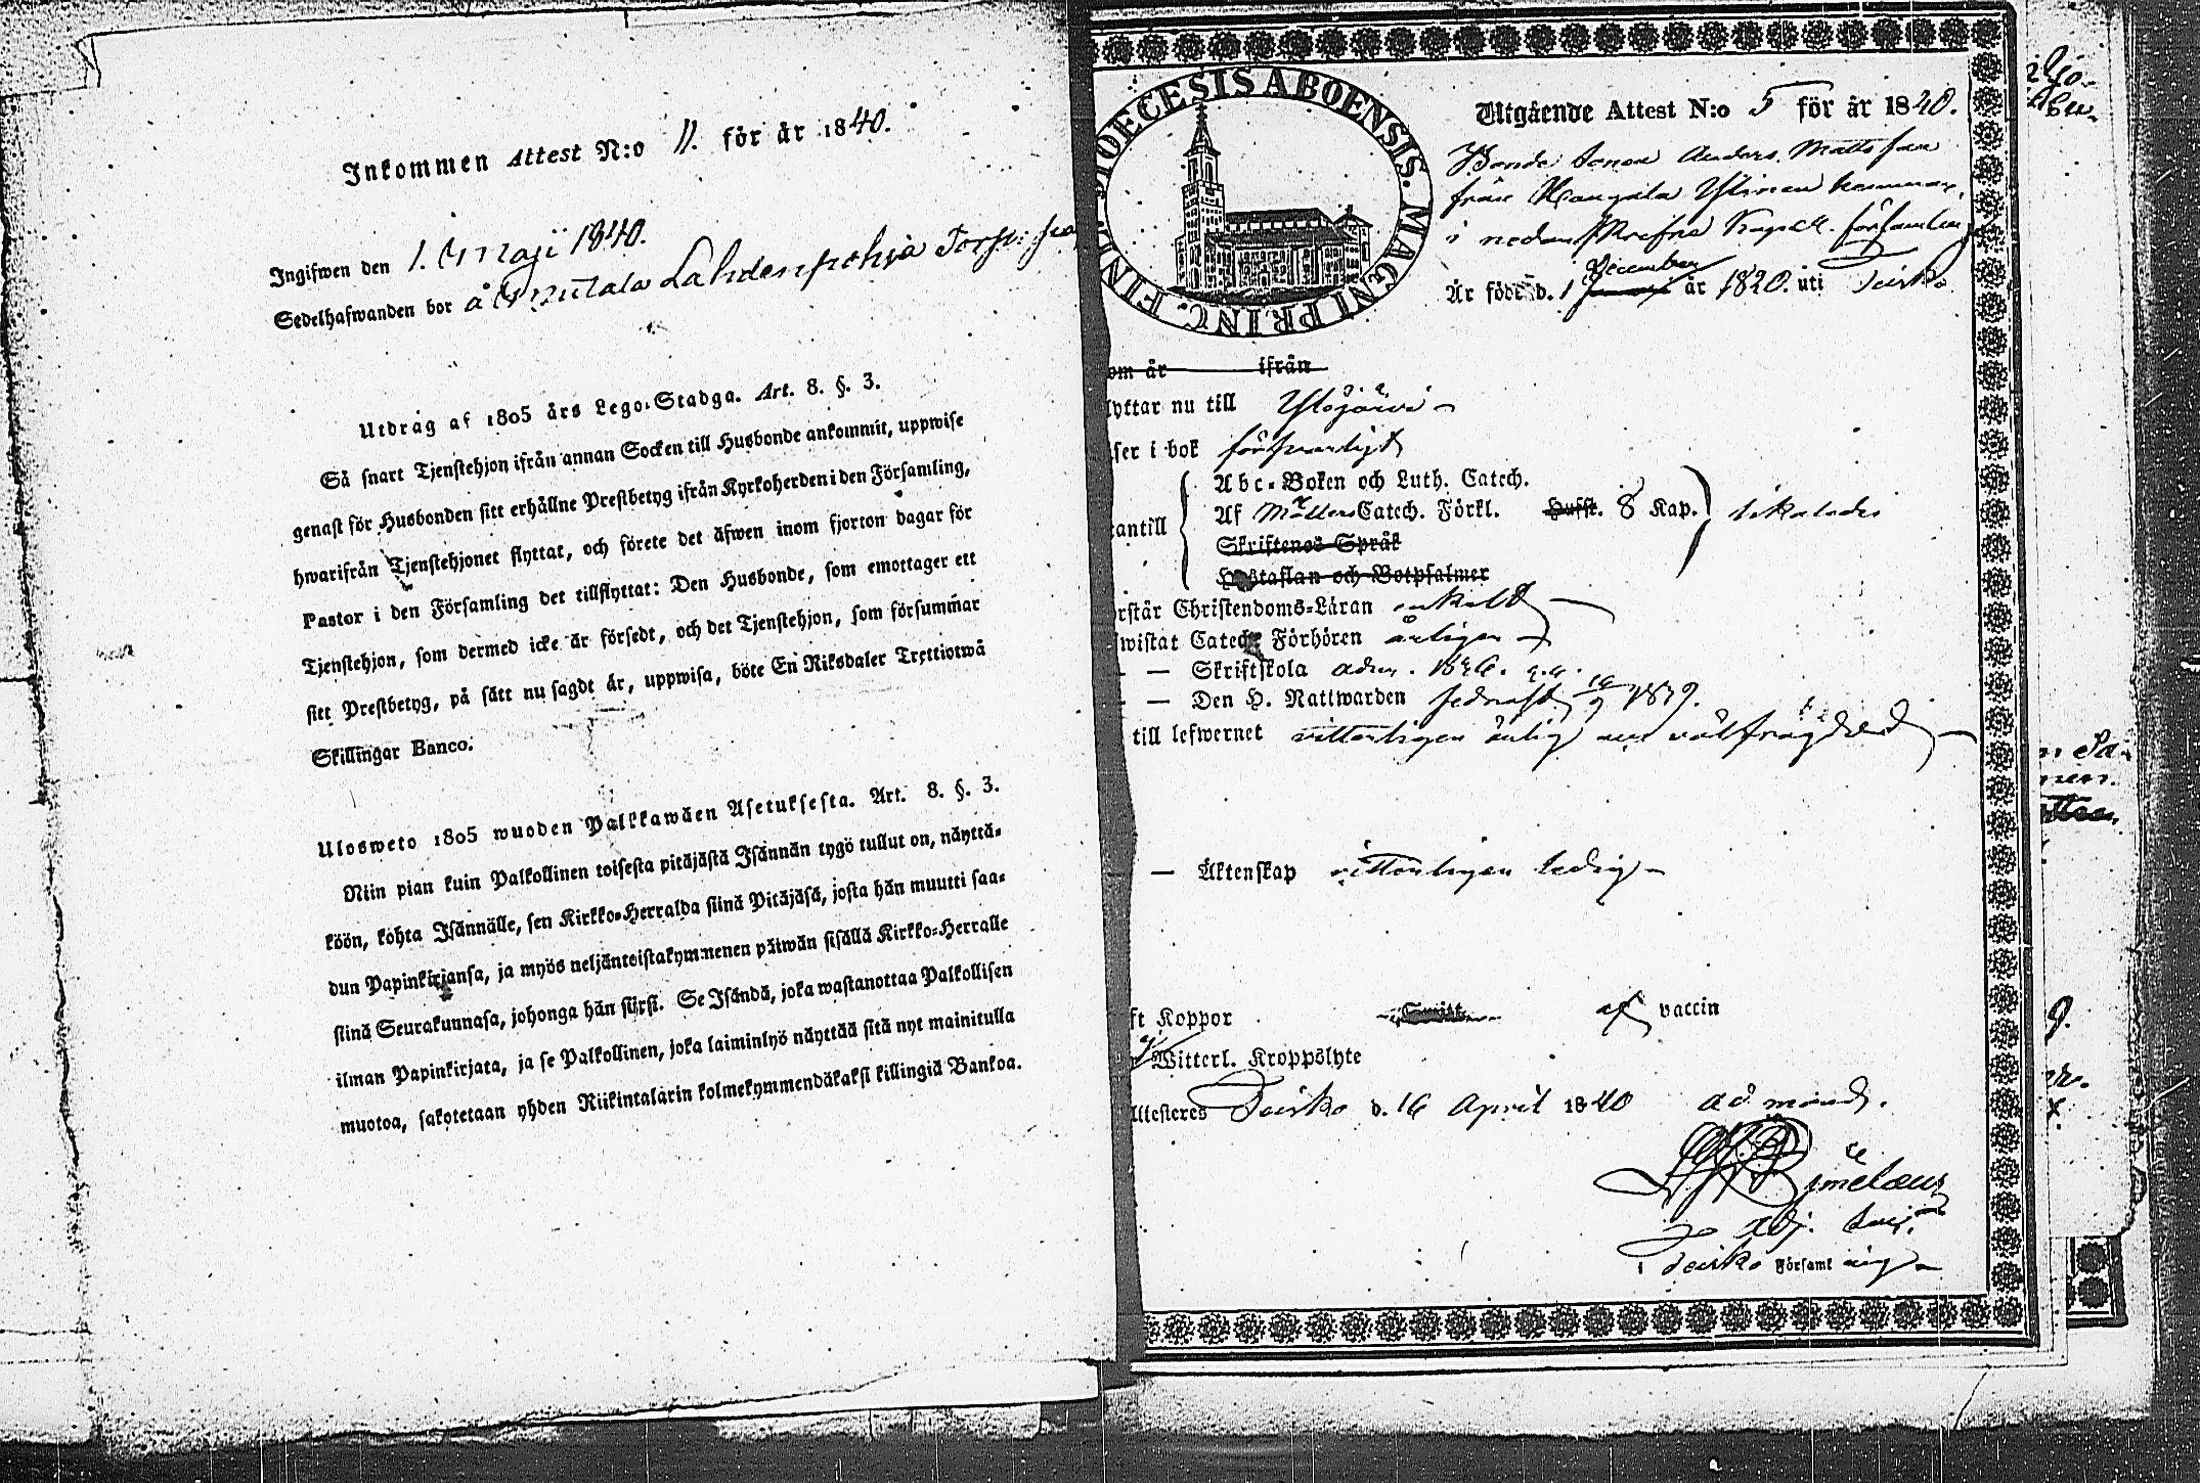 Inkommen Attest N:o 11. för år 1840.
Ingifwen den 1. Maji 1840.
Sedelhafwanden bor å Mutala Lahdenpohja Torp
Utdrag af 1805 års Lego-Stadga. Art. 8. §. 3.
Så snart Tjenstehjon ifrån annan Socken till Husbonde ankommit, uppwise
genast för Husbonden sitt erhållne Prestbetyg ifrån Kyrkoherden i den Församling,
hwarifrån Tjenstehjonet flyttat, och förete det äfwen inom fjorton dagar för
Pastor i den Församling det tillflyttat: Den Husbonde, som emottager ett
Tjenstehjon, som dermed icke är försedt, och det Tjenstehjon, som försummar
sitt Prestbetyg, på sätt nu sagdt är, uppwisa, böte En Riksdaler Trettiotwå
Skillingar Banco.
Ulosweto 1805 wuoden Palkkawäen Asetuksesta. Art. 8. §. 3.
Niin pian kuin Palkollinen toisesta pitäjästä Isännän tygö tullut on, näyttä-
köön, kohta Isännälle, sen Kirkko-Herralda siinä Pitäjäsä, josta hän muutti saa-
dun Papinkirjansa, ja myös neljäntoistakymmenen päiwän sisällä Kirkko-Herralle
siinä Seurakunnasa, johonga hän siirsi. Se Isändä, joka wastanottaa Palkollisen
ilman Papinkirjata, ja se Palkollinen, joka laiminlyö näyttää sitä nyt mainitulla
muotoa, sakotetaan yhden Riikintalarin kolmekymmendäkaksi killingiä Bankoa.
DIOECESIS ABOENSIS. MAGNI PRINC. FINL.
Utgående Attest N:o 5 för år 1840.
Bonde sonen Anders Mattsson
från Ylinen hemman,
i nedanskrefna Kapell församling
December
Är född d. 1 år 1820. uti Teisko
om år ifrån
lyttar nu till Ylöjärvi
ser i bok försvarligt
Abc-Boken och Luth. Catech.
antill Af Möllers Catech. Förkl. Hufst. 8 Kap.
Skriftenes Språk
Hustaflan och Botpsalmer
rstår Christendoms-Läran enkelt
wistat Catech. Förhören årligen
— — Skriftskola adm. 1836.
— — Den H. Nattwarden sednast 1839.
till lefwernet vitterligen ärlig och välfrägdad
— Äktenskap vitterligen ledig
ft Koppor af vaccin
Witterl. Kroppslyte
Attesteres Teisko d. 16 April 1840 ad mand.
Adj.
i Teisko Församling